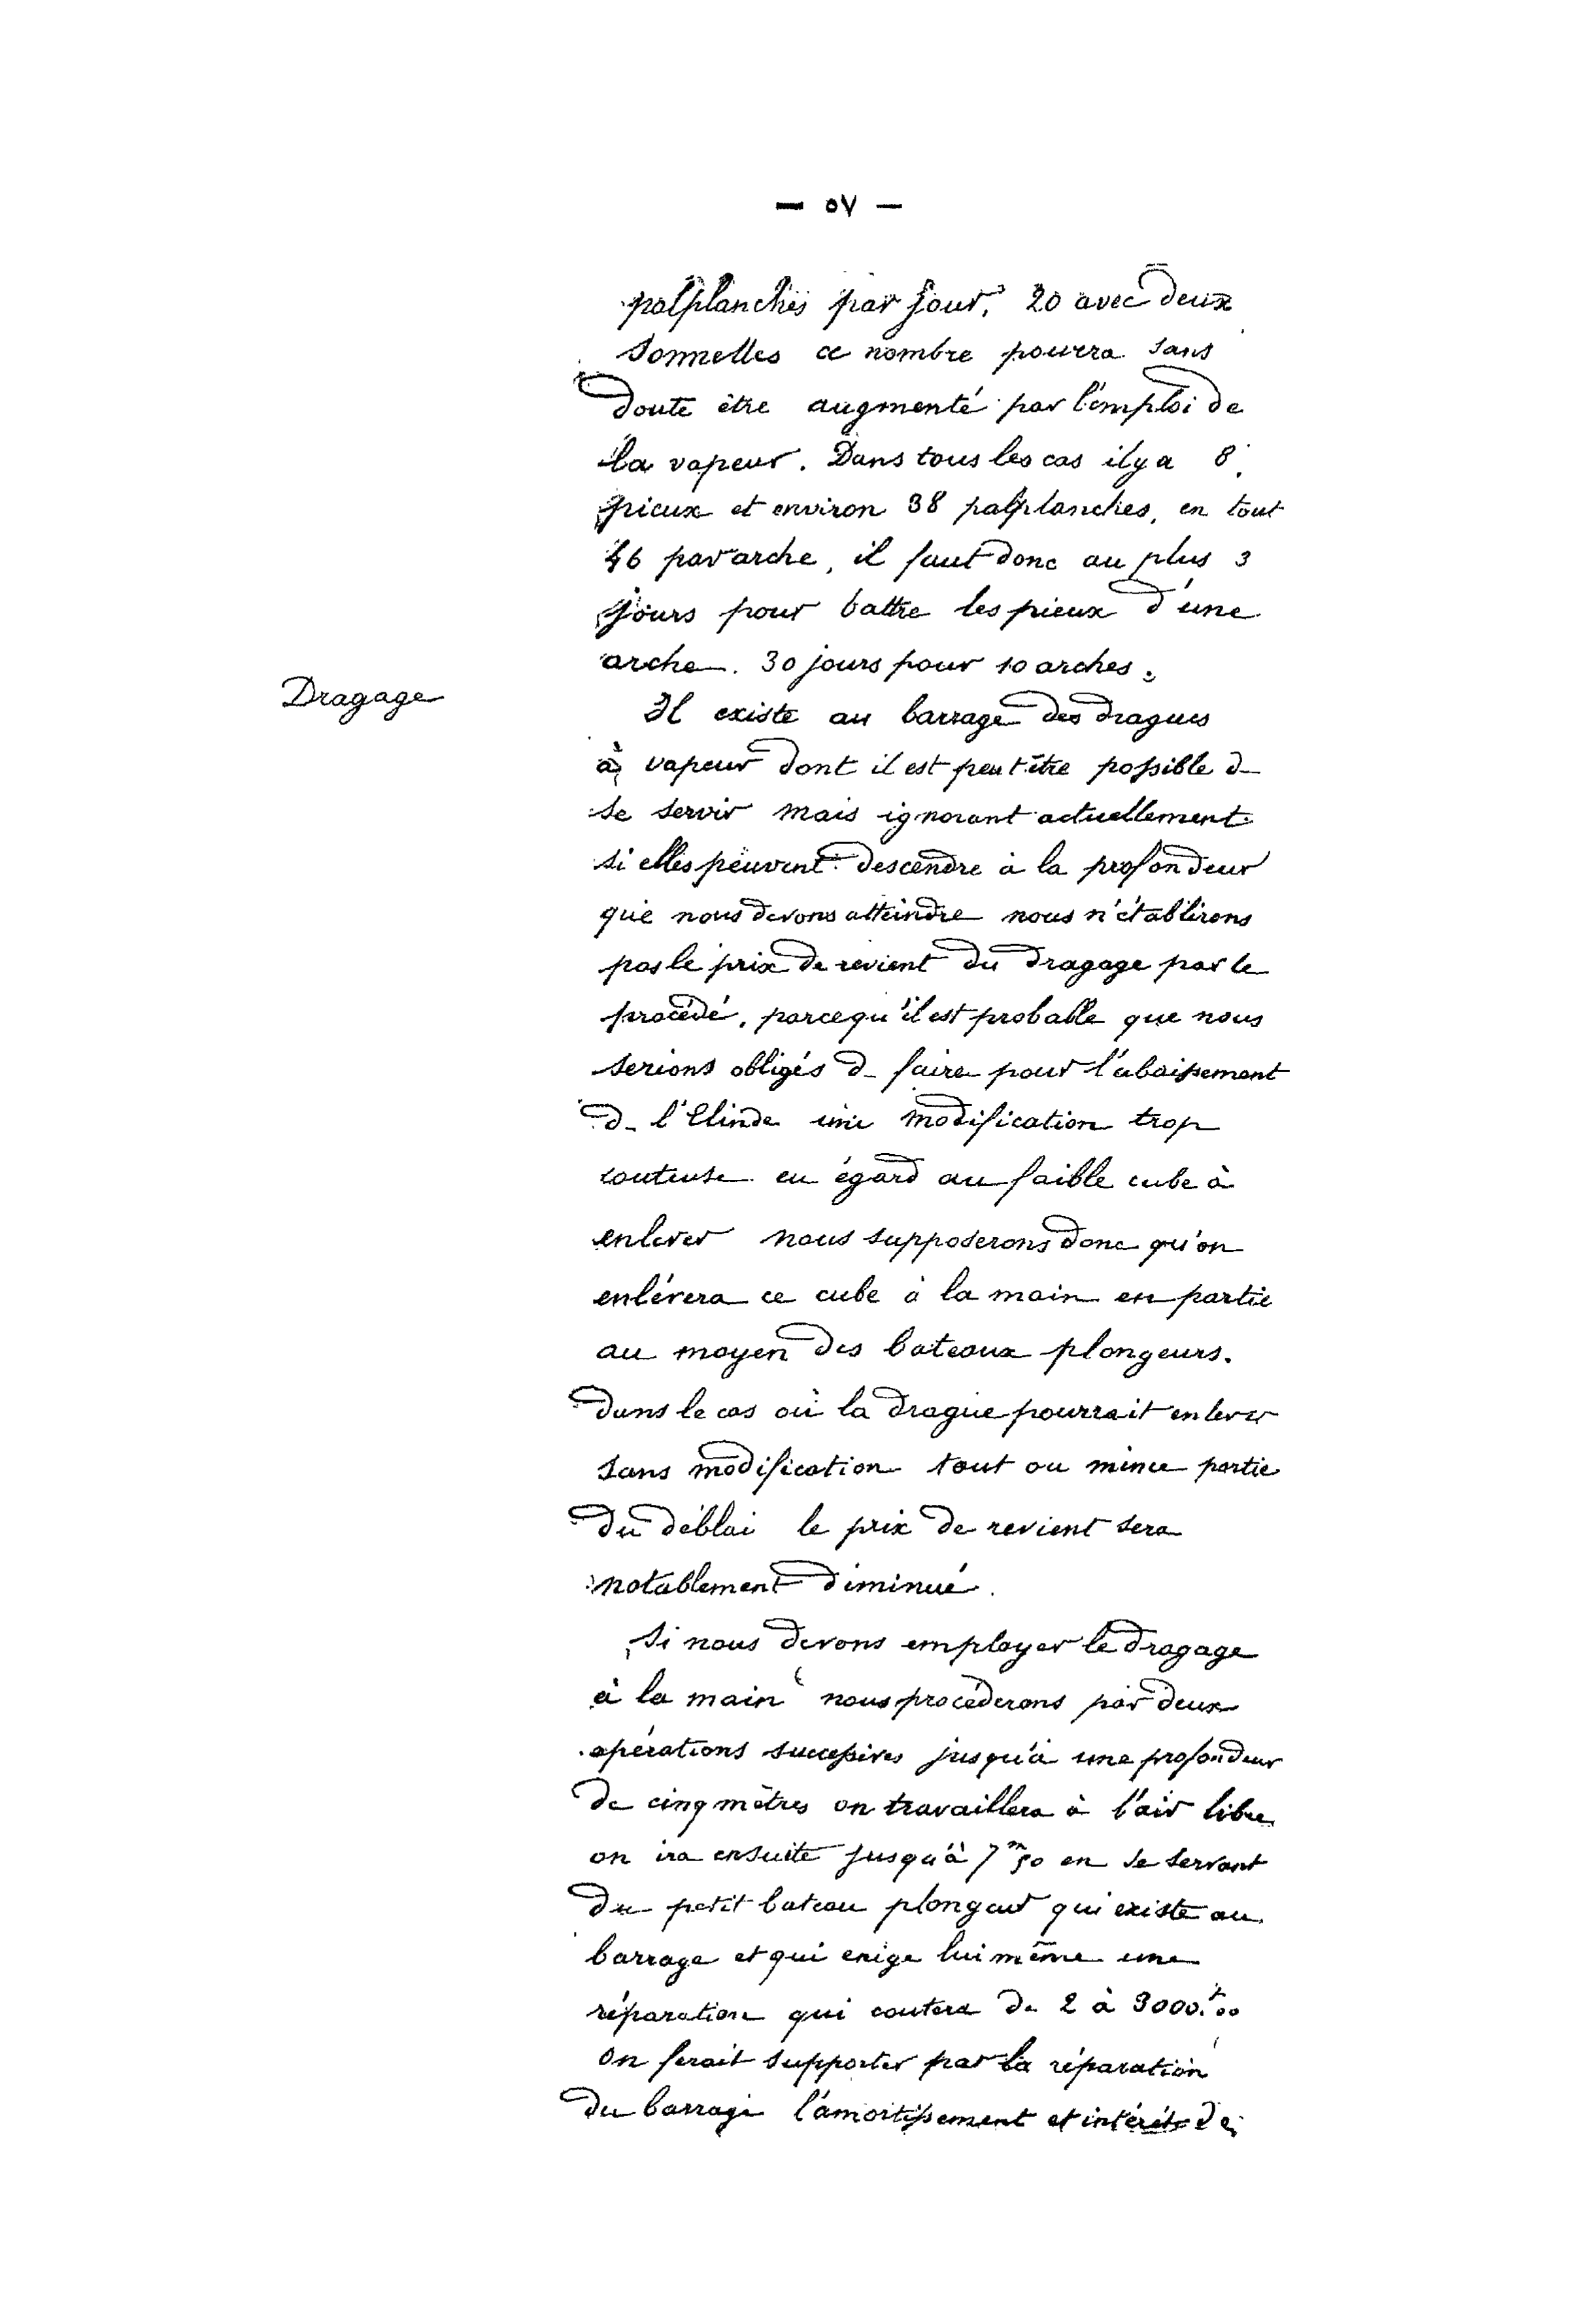 — ٥٧ —
palplanches par jour, 20 avec deux
sonnettes ce nombre pourra sans
doute être augmenté par l'emploi de
la vapeur. Dans tous les cas il y a 8
pieux et environ 38 palplanches, en tout
46 par arche, il faut donc au plus 3
jours pour battre les pieux d'une
arche. 30 jours pour 10 arches.
Dragage
Il existe au barrage des dragues
à vapeur dont il est peut être possible d_
se servir mais ignorant actuellement
si elles peuvent descendre à la profondeur
que nous devons atteindre nous n'établirons
pas le prix de revient du dragage par le
procédé, parcequ'il est probable que nous
serions obligés d_ faire pour l'abaissement
d_ l'Elinde une modification trop
couteuse eu égard au faible cube à
enlever nous supposerons donc qu'on
enlévera ce cube à la main en partie
au moyen des bateaux plongeurs.
Dans le cas où la drague pourrait enlever
sans modification tout ou mince partie
du déblai le prix de revient sera
notablement diminué.
Si nous devons employer le dragage
à la main nous procéderons par deux
opérations successives jusqu'à une profondeur
de cinq mètres on travaillera à l'air libre
on ira ensuite jusqu'à 7m50 en se servant
du petit bateau plongeur qui existe au
barrage et qui exige lui même une
réparation qui coutera de 2 à 3000.f00
on ferait supporter par la réparation
du barrage l'amortissement et intérêts de